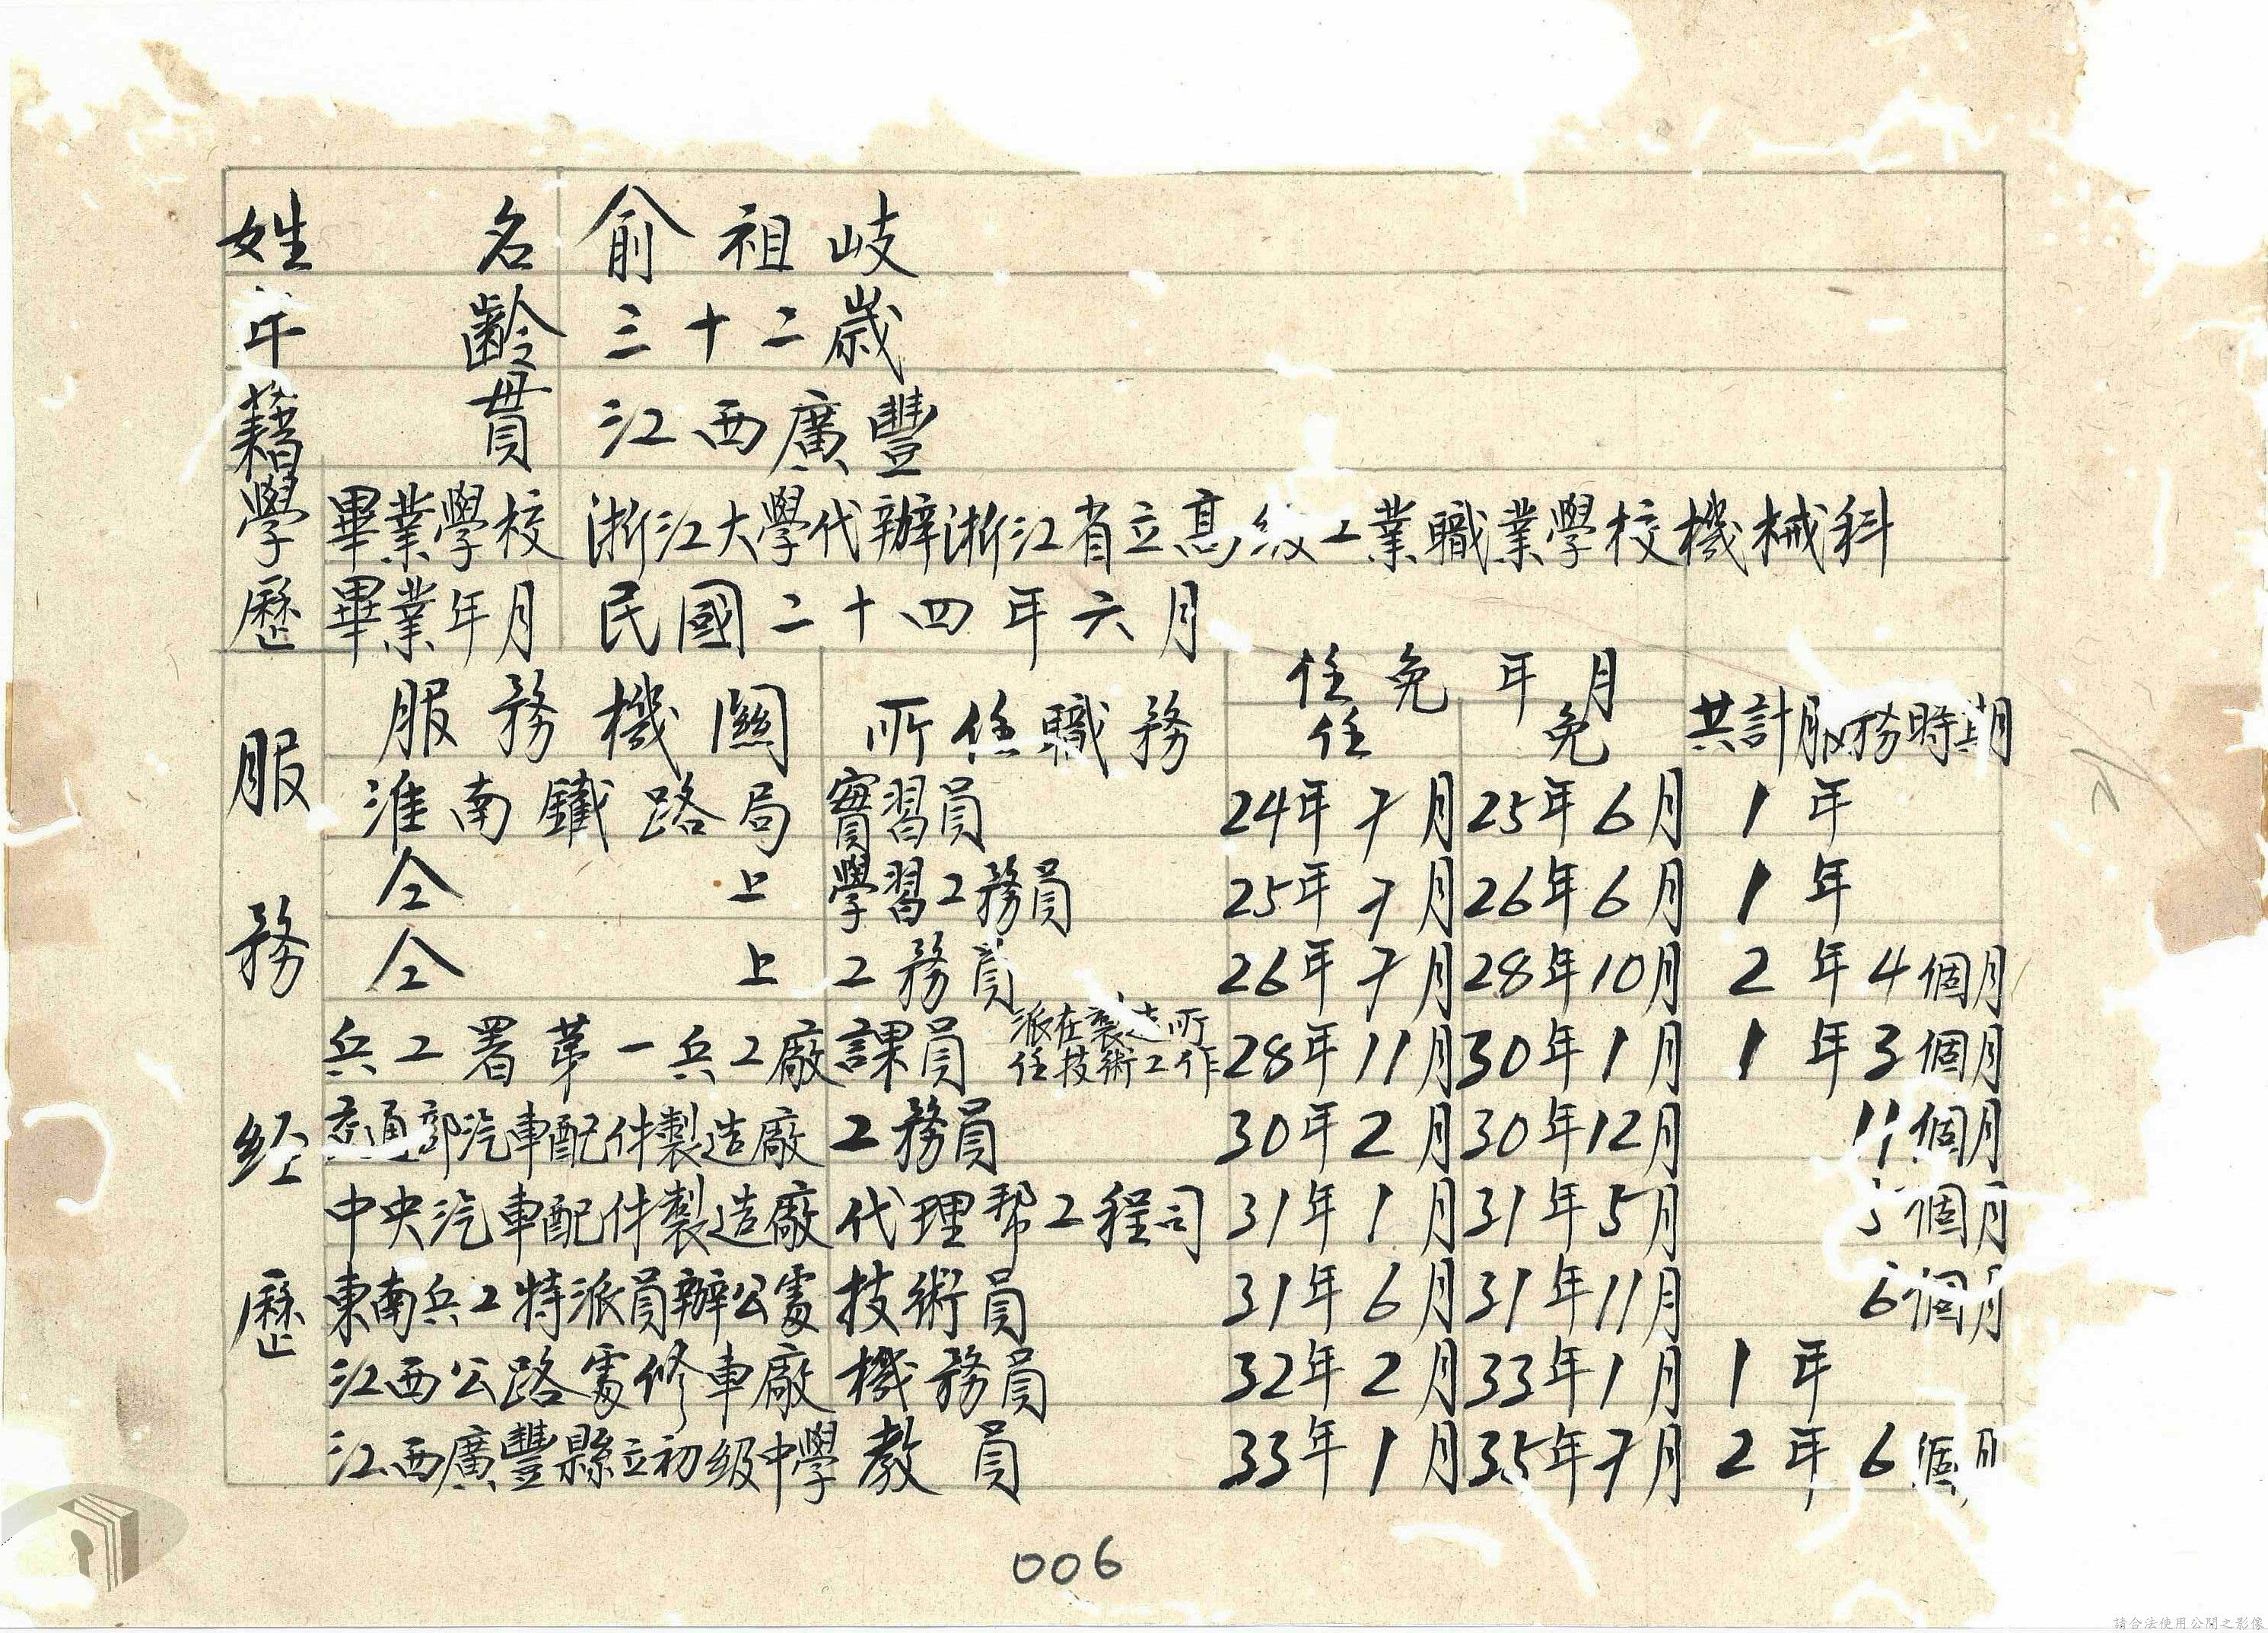 姓名 俞祖岐
年齡 三十二歲
籍貫 江西廣豐
學歷 畢業學校 浙江大學代辦浙江省立高級工業職業學校機械科
畢業年月 民國二十四年六月
服務經歷 服務機關 所任職務 任免年月 共計服務時期
任 免
淮南鐵路局 實習員 24年7月 25年6月 1年
仝上 學習工務員 25年7月 26年6月 1年
仝上 工務員 26年7月 28年10月 2年4個月
兵工署第一兵工廠 課員 派在製造所任技術工作 28年11月 30年1月 1年3個月
交通部汽車配件製造廠 工務員 30年2月 30年12月 11個月
中央汽車配件製造廠 代理幫工程司 31年1月 31年5月 5個月
東南兵工特派員辦公處 技術員 31年6月 31年11月 6個月
江西公路處修車廠 機務員 32年2月 33年1月 1年
江西廣豐縣立初級中學 教員 33年1月 35年7月 2年6個月
006
請合法使用公開之影像